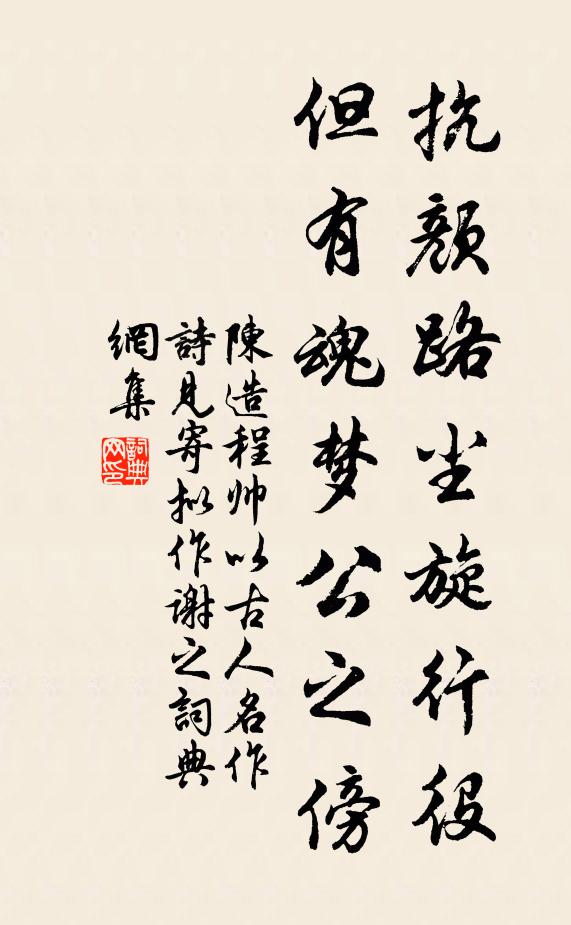 抗颜路尘旋行役
但有魂梦公之傍
陳造程帅以古人名作
詩見寄拟作谢之詞典
網集
詞典网印